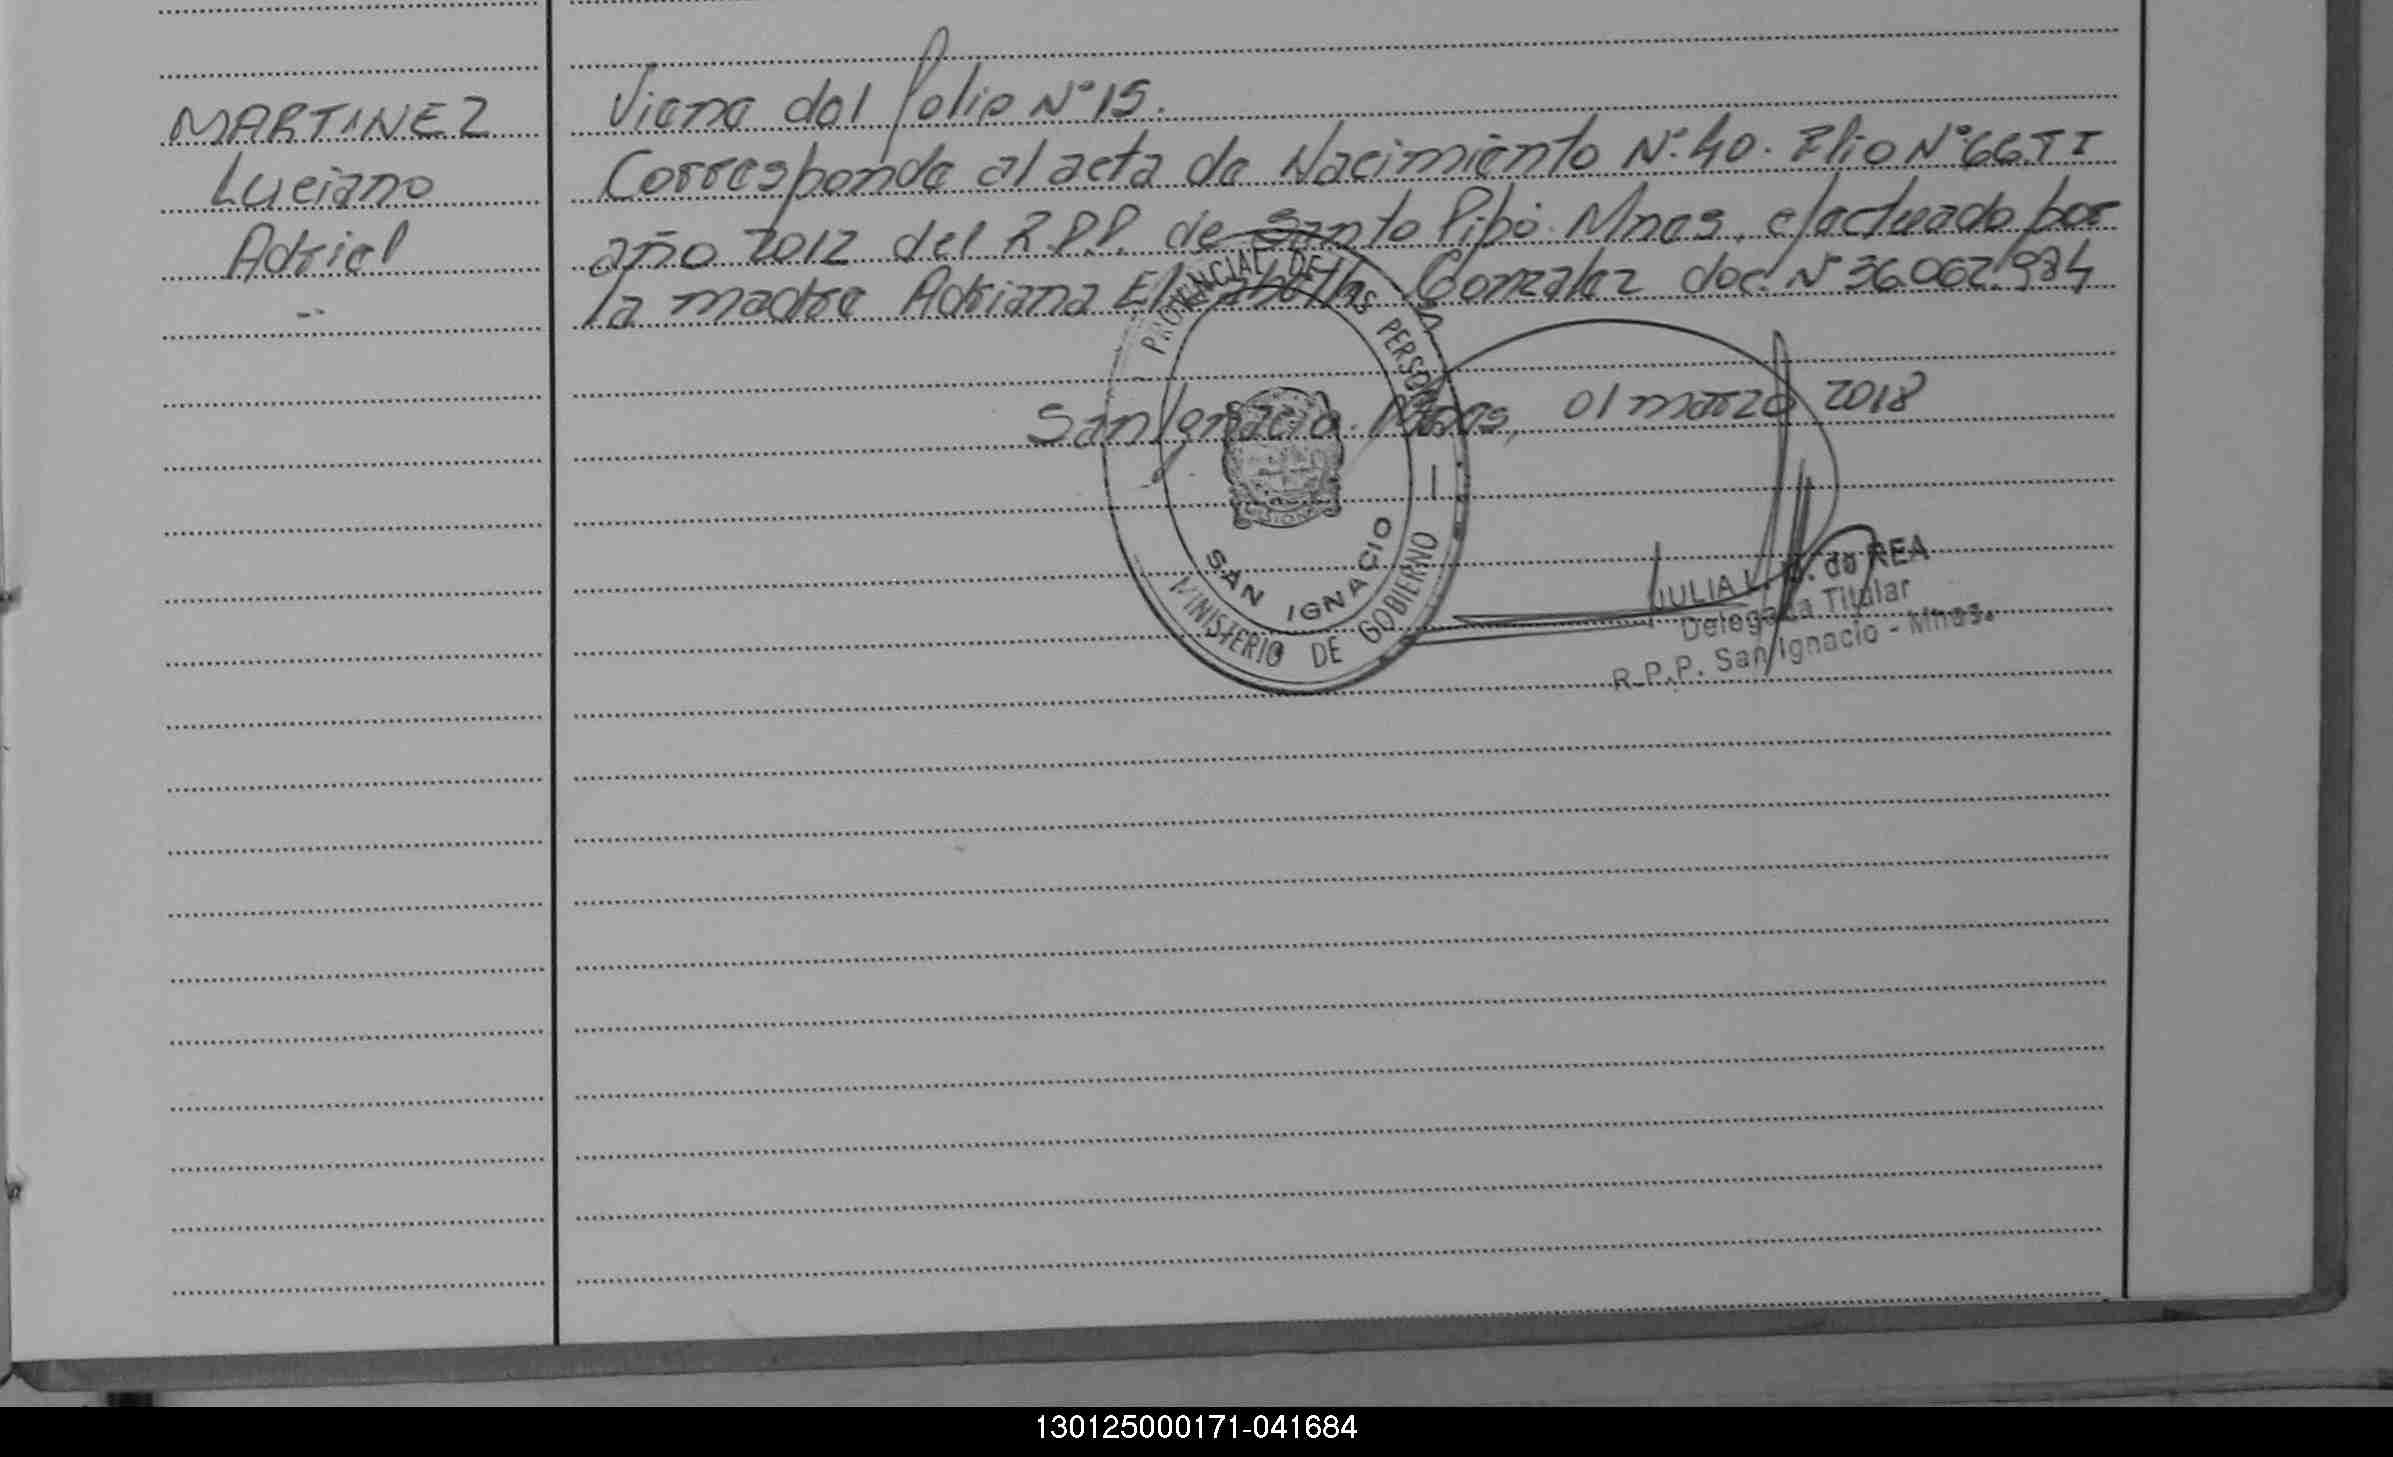 MARTINEZ
Luciano
Adriel
Viene del folio N° 15.
Corresponde al acta de Nacimiento N° 40. Flio N° 66. TI
año 2012 del R.P.P. de Santo Pipó. Mnes, efectuado por
la madre Adriana Elizabeth Gonzalez doc. N° 36.062.984
San Ignacio. Mnes, 01 marzo 2018
PROVINCIAL DE LAS PERSONAS
SAN IGNACIO
MINISTERIO DE GOBIERNO
JULIA L. de REA
Delegada Titular
R.P.P. San Ignacio - Mnes.
130125000171-041684